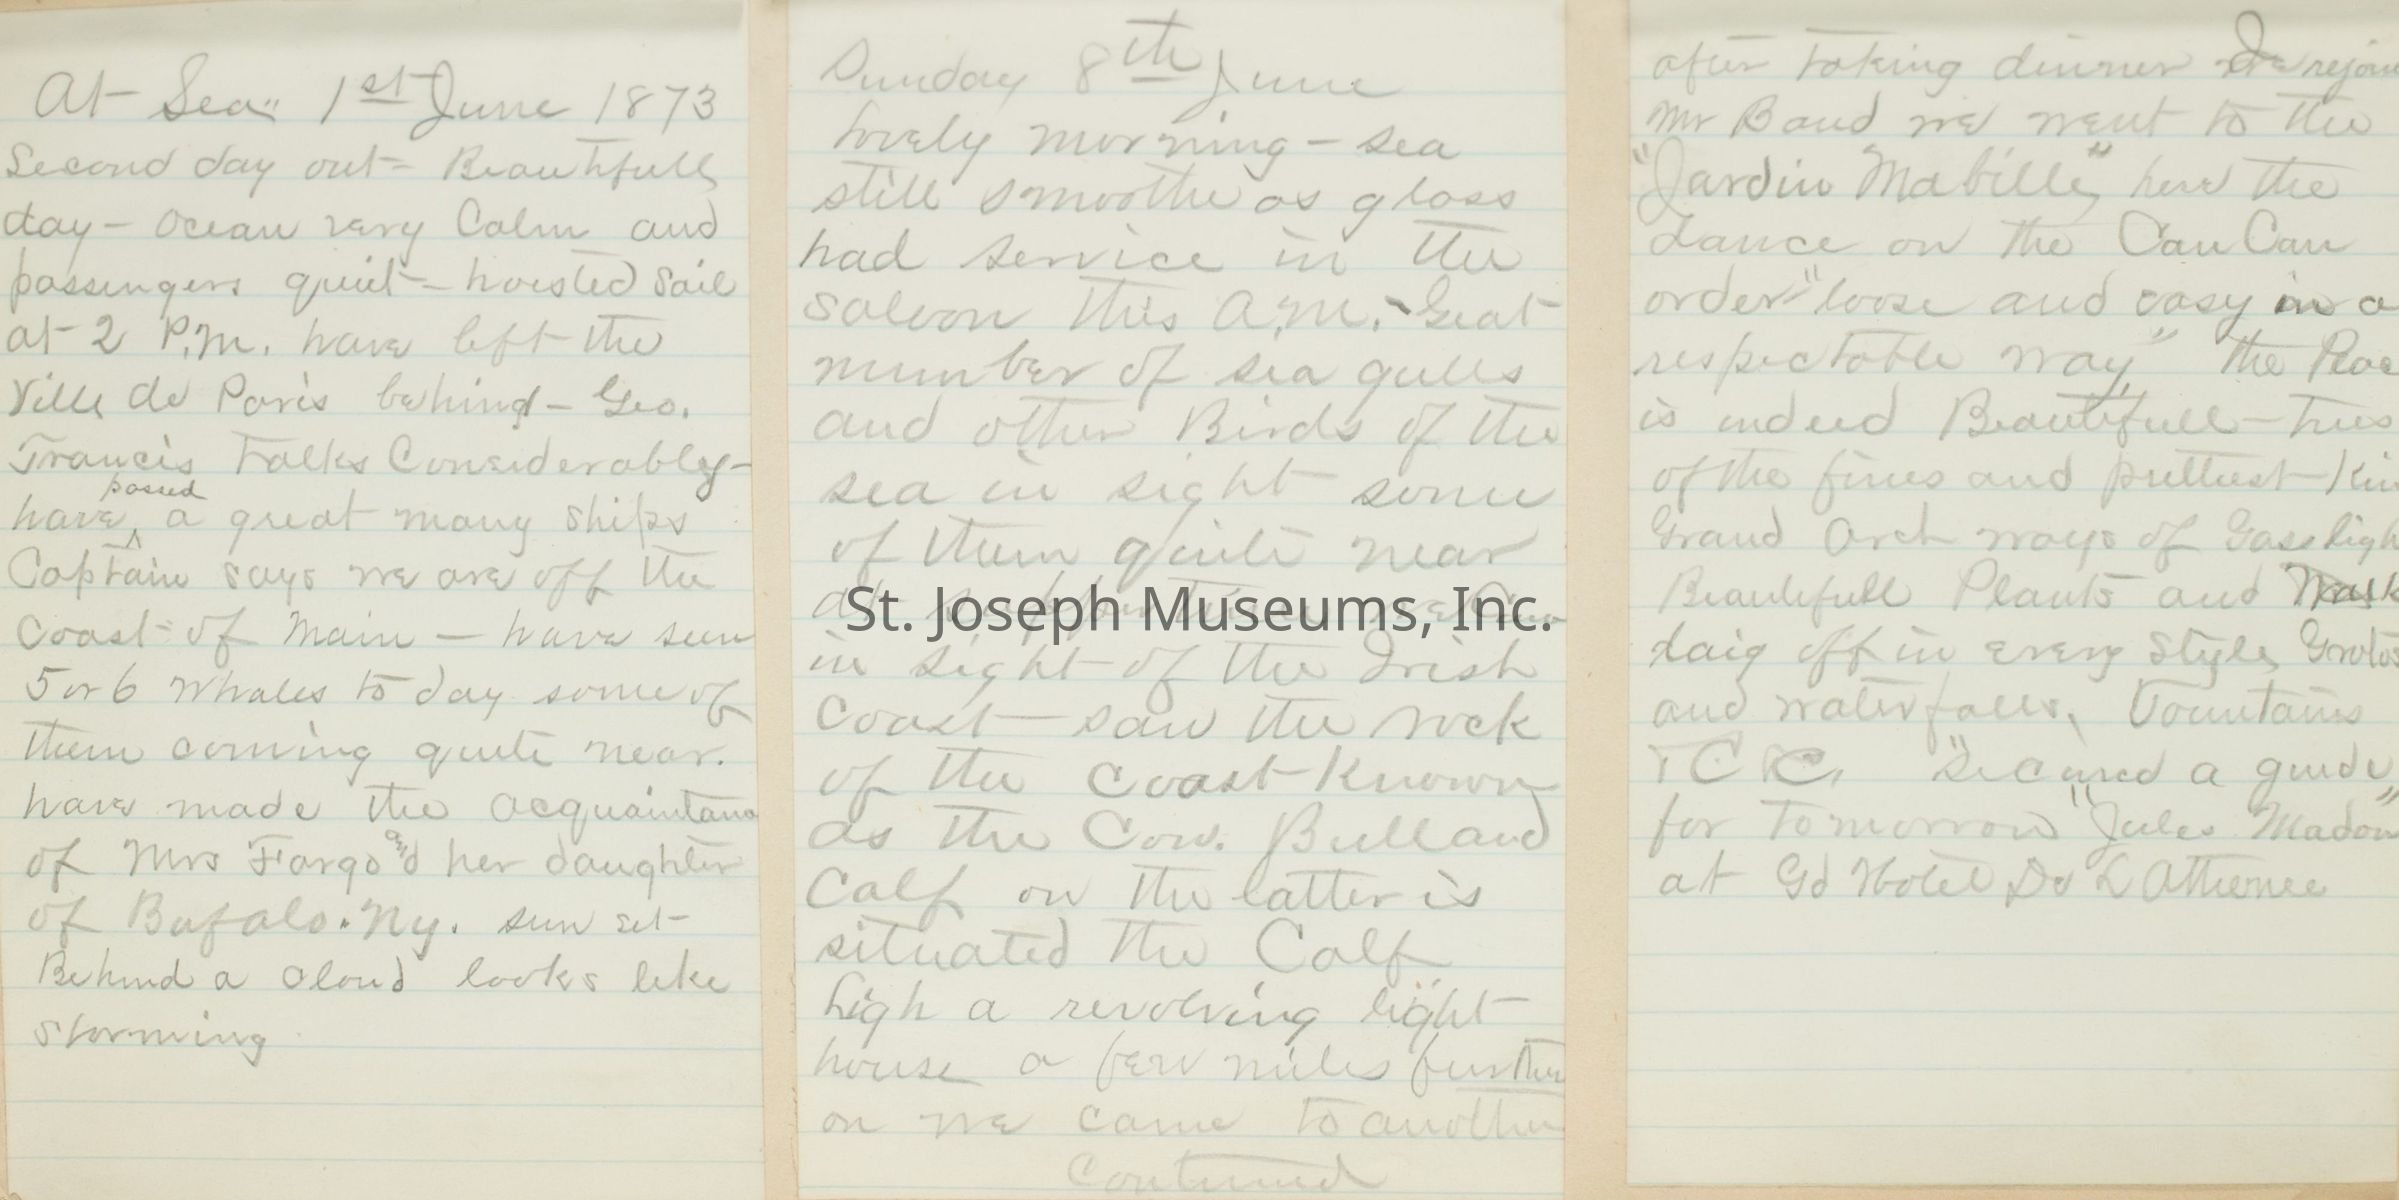 At Sea 1st June 1873
Second day out - Beautifull
day - ocean very Calm and
passengers quiet - hoisted sail
at 2 P.M. have left the
Ville de Paris behind - Geo.
Francis talks Considerably -
passed
have a great many ships
Captain says we are off the
Coast of Main - have seen
5 or 6 whales to day some of
them coming quite near.
have made the acquaintanc
of Mrs Fargo and her daughter
of Bufalo. Ny. sun set
Behind a cloud looks like
storming
Sunday 8th June
lovely morning - sea
still smoothe as glass
had service in the
saloon this A.M. - Great
number of sea gulls
and other Birds of the
sea in sight some
of them quite near
St. Joseph Museums, Inc.
in sight of the Irish
Coast - saw the rock
of the Coast Known
as the Cow. Bull and
Calf on the latter is
situated the Calf
high a revolving light
house a few miles further
on we came to another
Contunued
after taking dinner rejoin
Mr Baud we went to the
"Jardin Mabille" here the
dance on the Can Can
order "loose and easy in a
respectable way" the Plac
is indeed Beautifull - trees
of the fines and prettiest Kin
Grand Arch ways of Gass ligh
Beautifull Plants and
laig off in every Style, Grotos
and waterfalls, Fountains
Secured a guide
for Tomorrow "Jules Madou"
at Gd Hotel De L Athenee